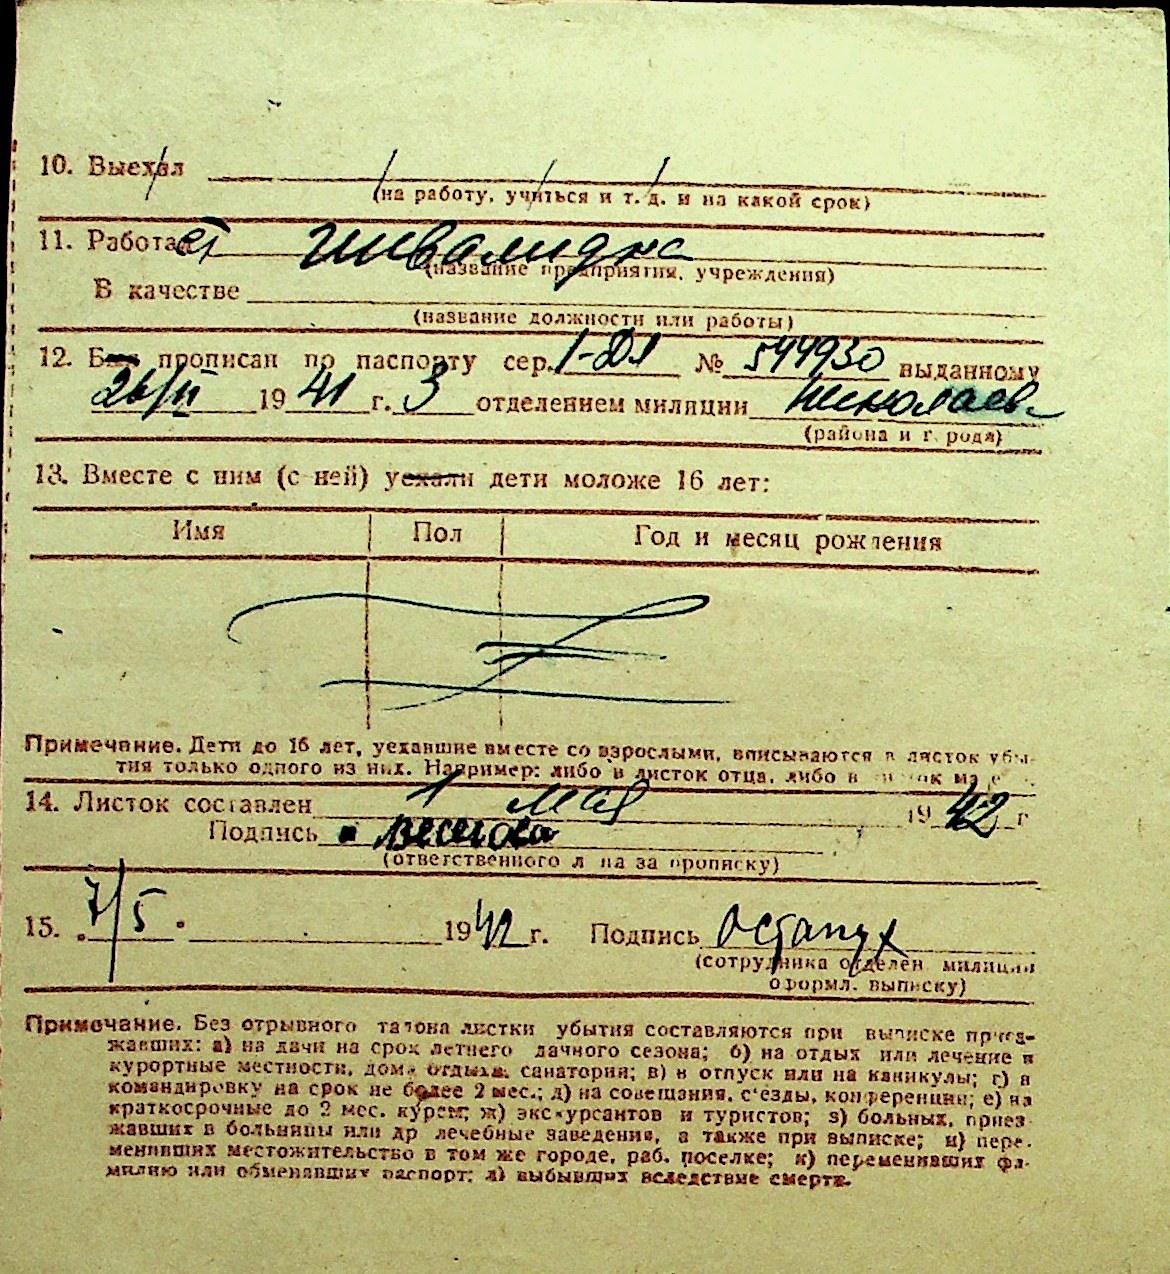 10. Выехал
(на работу, учиться и т. д. и на какой срок)
11. Работает инвалидка
(название предприятия, учреждения)
В качестве
(название должности или работы)
12. Был прописан по паспорту сер. 1-ДЯ № 544930 выданному
26/II 1941 г. 3 отделением милиции Николаев
(района и города)
13. Вместе с ним (с ней) уехали дети моложе 16 лет:
Имя Пол Год и месяц рождения
Примечание. Дети до 16 лет, уехавшие вместе со взрослыми, вписываются в листок убы-
тия только одного из них. Например: либо в листок отца, либо в листок ма
14. Листок составлен 1 мая 1942 г
Подпись
(ответственного л на за прописку)
15. 7/5 1942 г. Подпись Остапух
(сотрудника отделен. милиции
оформл. выписку)
Примечание. Без отрывного талона листки убытия составляются при выписке приез-
жавших: а) на дачи на срок летнего дачного сезона; б) на отдых или лечение в
курортные местности, дома отдыха, санатории; в) в отпуск или на каникулы; г) в
командировку на срок не более 2 мес.; д) на совещания, с'езды, конференции; е) на
краткосрочные до 2 мес. курсы; ж) экскурсантов и туристов; з) больных, приез-
жавших в больницы или др лечебные заведения, а также при выписке; и) пере-
менивших местожительство в том же городе, раб. поселке; к) переменивших фа-
милию или обменявших паспорт; л) выбывших вследствие смерти.